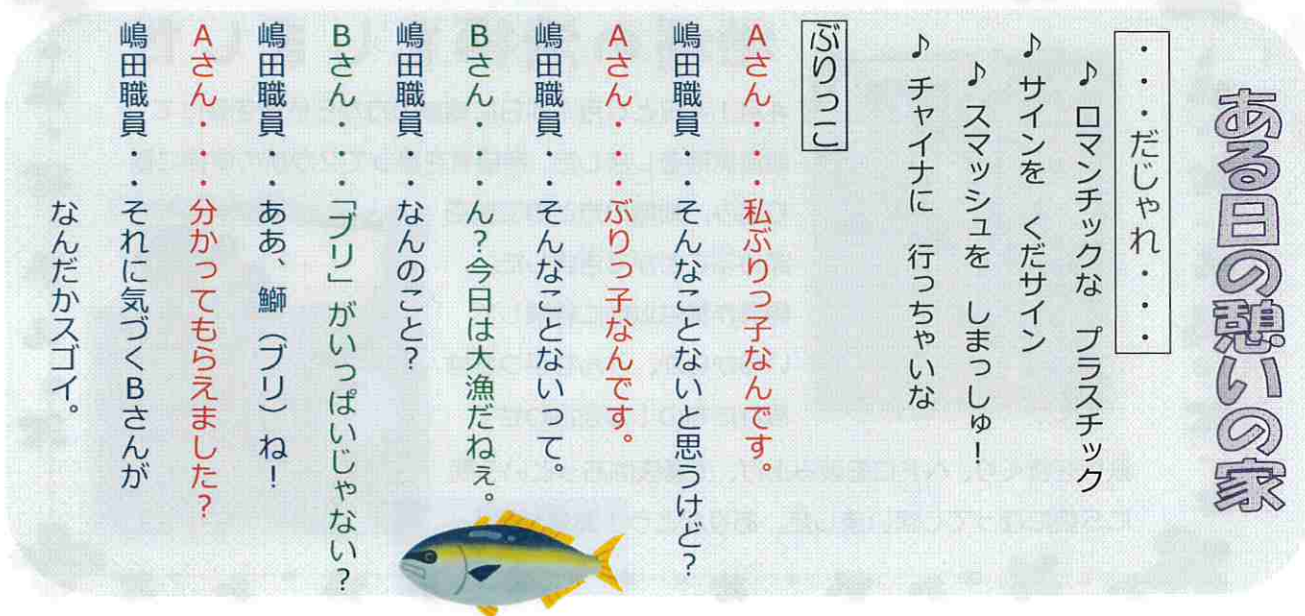 ある日の憩いの家
・・・だじゃれ・・・・
♪ ロマンチックな プラスチック
♪ サインを くだサイン
♪ スマッシュを しまっしゅ！
♪ チャイナに 行っちゃいな
ぶりっこ
Aさん・・・・私ぶりっ子なんです。
嶋田職員・・そんなことないと思うけど？
Aさん・・・・ぶりっ子なんです。
嶋田職員・・そんなことないって。
Bさん・・・・ん？今日は大漁だねぇ。
嶋田職員・・なんのこと？
Bさん・・・・「ブリ」がいっぱいじゃない？
嶋田職員・・ああ、鰤（ブリ）ね！
Aさん・・・・分かってもらえました？
嶋田職員・・それに気づくBさんが
なんだかスゴイ。